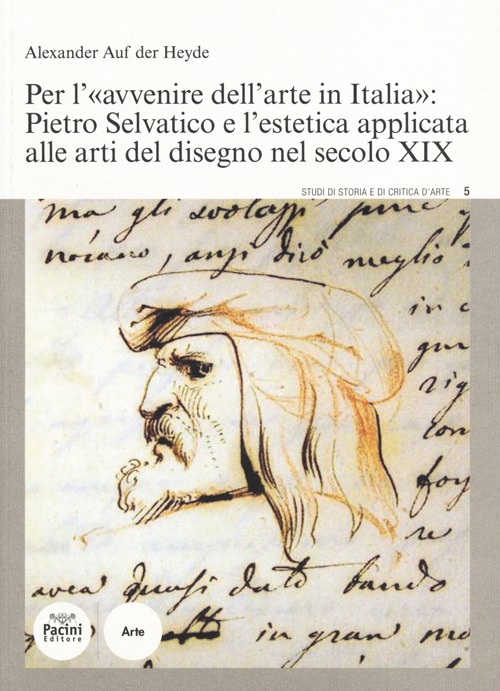 Alexander Auf der Heyde
Per l'«avvenire dell'arte in Italia»:
Pietro Selvatico e l'estetica applicata
alle arti del disegno nel secolo XIX
STUDI DI STORIA E DI CRITICA D'ARTE 5
ma gli svolazzi pure
anzi dirò meglio
in
re
avea quasi dato bando
Pacini
Editore
Arte
in gran